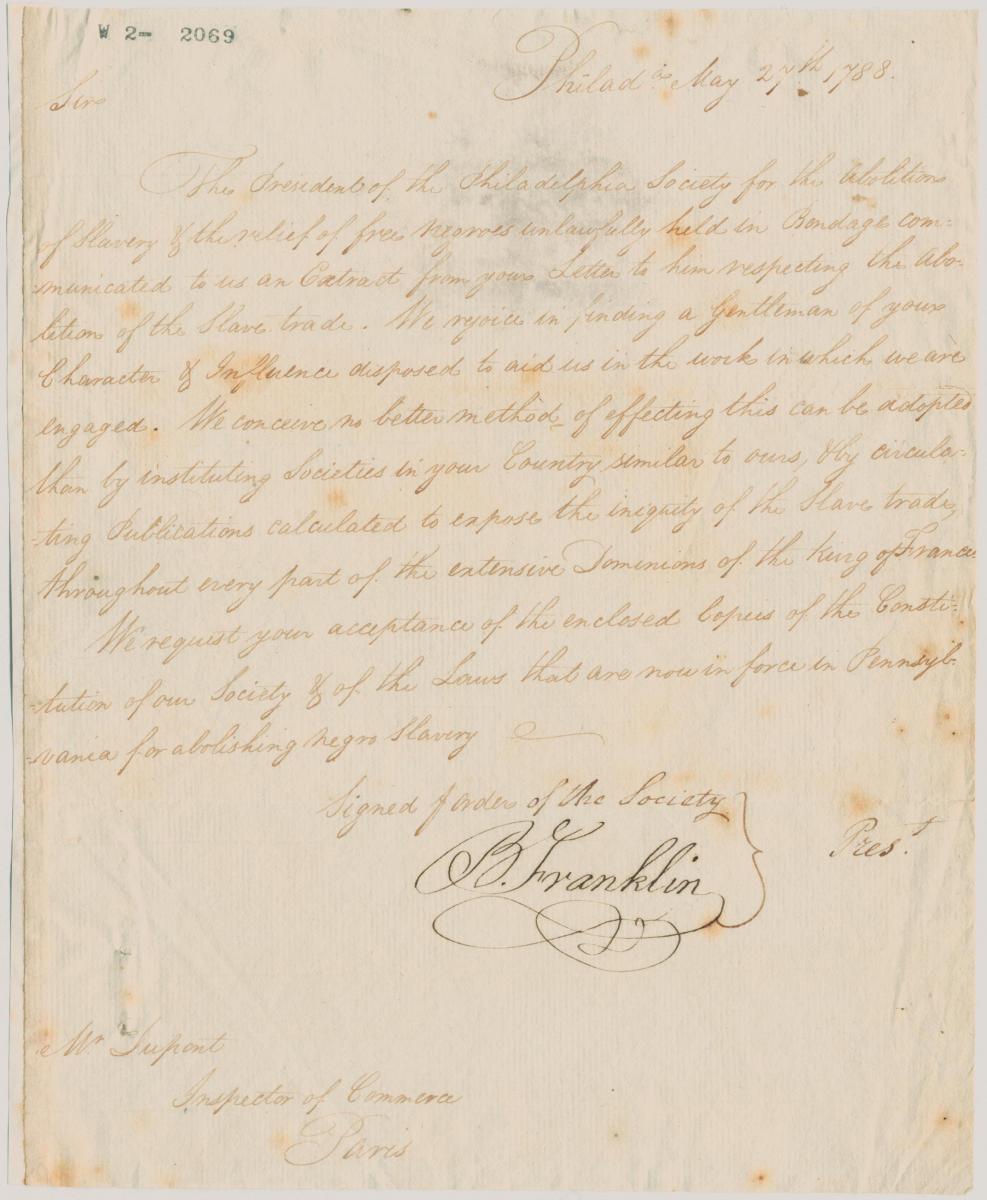 W 2- 2069
Philadᵃ. May 27th. 1788.
Sir
The President of the Philadelphia Society for the Abolition
of Slavery & the relief of free negroes unlawfully held in Bondage com-
-municated to us an Extract from your Letter to him respecting the Abo-
lition of the Slave trade. We rejoice in finding a Gentleman of your
Character & Influence disposed to aid us in the work in which we are
engaged. We conceive no better method of effecting this can be adopted
than by instituting Societies in your Country, similar to ours, & by circula-
-ting Publications calculated to expose the iniquity of the Slave trade,
throughout every part of the extensive Dominions of the King of France
We request your acceptance of the enclosed Copies of the Consti-
-tution of our Society & of the Laws that are now in force in Pennsyl-
-vania for abolishing negro Slavery
Signed ⅌ order of the Society
B. Franklin
Presᵗ.
Mr. Dupont
Inspector of Commerce
Paris